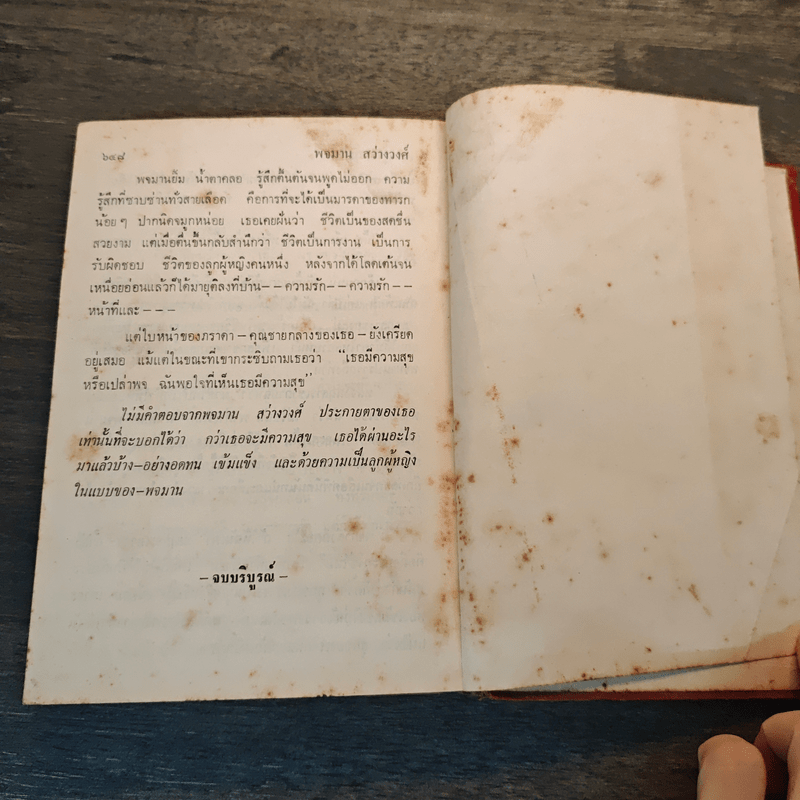 ๖๔๘ พจมาน สว่างวงศ์
พจมานยิ้ม น้ำตาคลอ รู้สึกตื้นตันจนพูดไม่ออก ความ
รู้สึกที่ซาบซ่านทั่วสายเลือด คือการที่จะได้เป็นมารดาของทารก
น้อยๆ ปากนิดจมูกหน่อย เธอเคยฝันว่า ชีวิตเป็นของสดชื่น
สวยงาม แต่เมื่อตื่นขึ้นกลับสำนึกว่า ชีวิตเป็นการงาน เป็นการ
รับผิดชอบ ชีวิตของลูกผู้หญิงคนหนึ่ง หลังจากได้โลดเต้นจน
เหนื่อยอ่อนแล้วก็ได้มายุติลงที่บ้าน--ความรัก--ความรัก--
หน้าที่และ---
แต่ใบหน้าของภราดา-คุณชายกลางของเธอ-ยังเครียด
อยู่เสมอ แม้แต่ในขณะที่เขากระซิบถามเธอว่า “เธอมีความสุข
หรือเปล่าพจ ฉันพอใจที่เห็นเธอมีความสุข”
ไม่มีคำตอบจากพจมาน สว่างวงศ์ ประกายตาของเธอ
เท่านั้นที่จะบอกได้ว่า กว่าเธอจะมีความสุข เธอได้ผ่านอะไร
มาแล้วบ้าง-อย่างอดทน เข้มแข็ง และด้วยความเป็นลูกผู้หญิง
ในแบบของ-พจมาน
-จบบริบูรณ์-